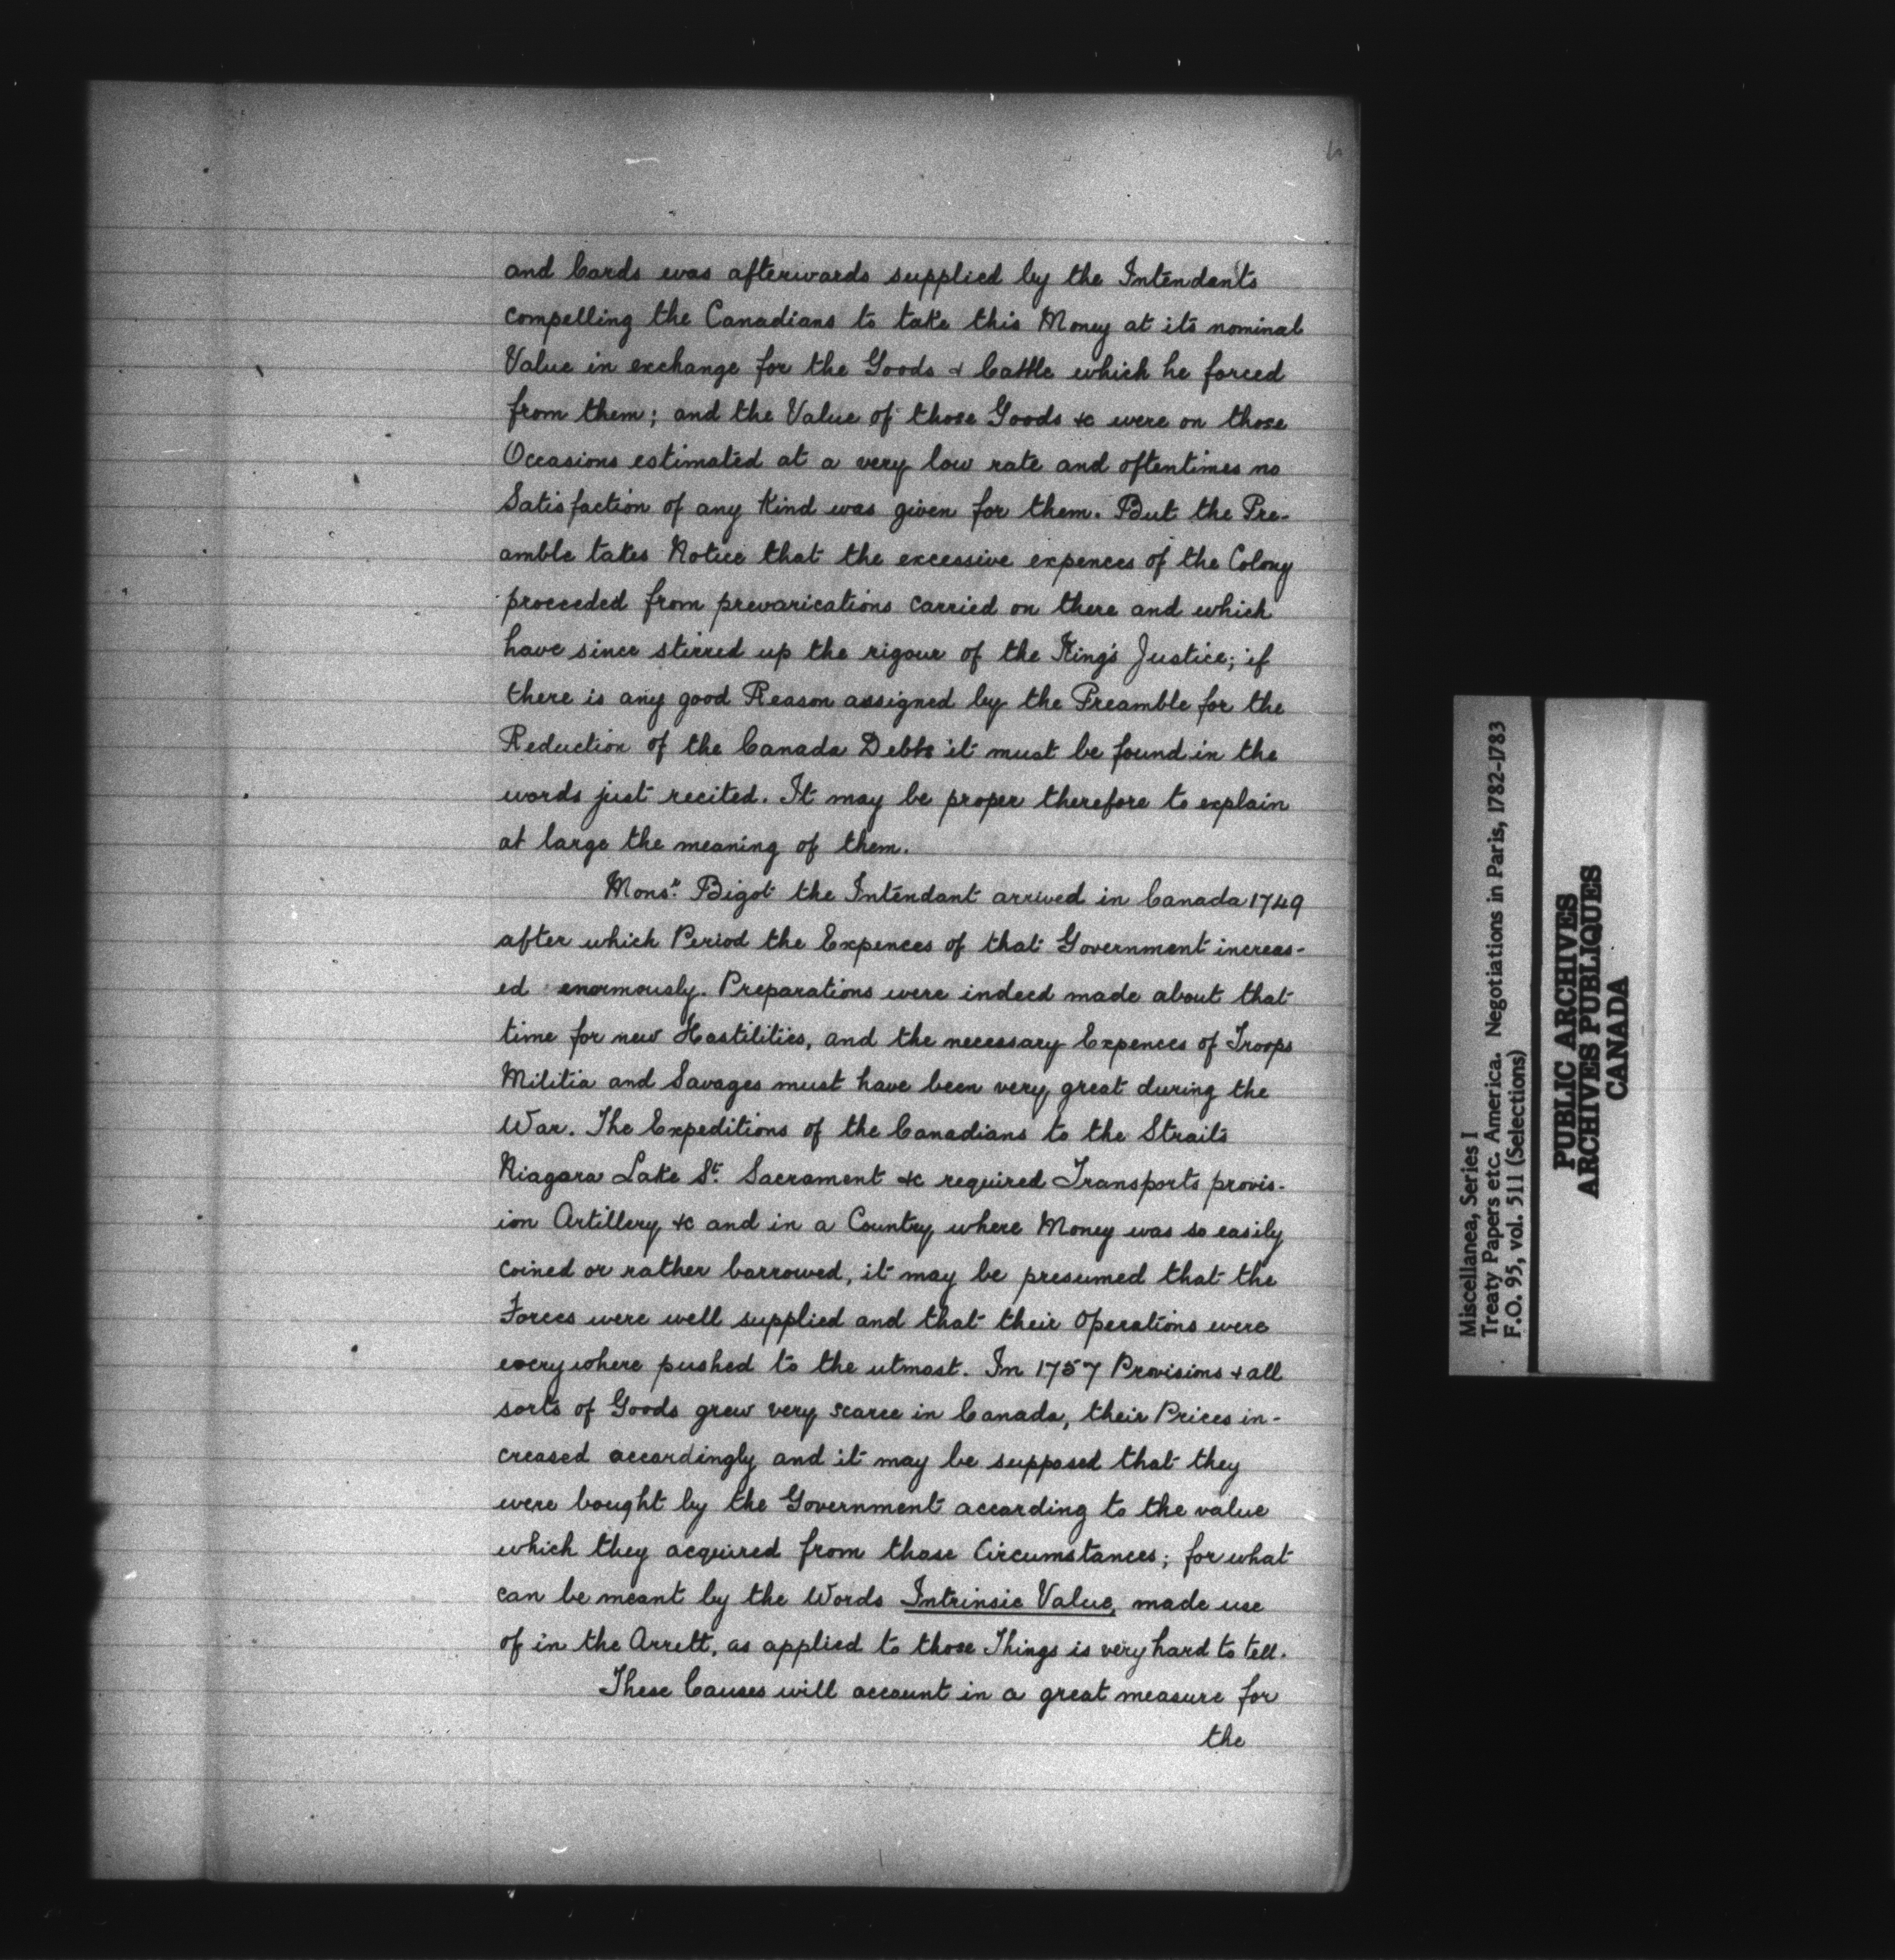 and Cards was afterwards supplied by the Intendants
compelling the Canadians to take this Money at its nominal
Value in exchange for the Goods & Cattle which he forced
from them; and the Value of those Goods &c were on those
Occasions estimated at a very low rate and oftentimes no
Satisfaction of any Kind was given for them. But the Pre-
amble takes Notice that the excessive expences of the Colony
proceeded from prevarications carried on there and which
have since stirred up the rigour of the King's Justice; if
there is any good Reason assigned by the Preamble for the
Reduction of the Canada Debts it must be found in the
words just recited. It may be proper therefore to explain
at large the meaning of them.
Monsr. Bigot the Intendant arrived in Canada 1749
after which Period the Expences of that Government increas-
ed enormously. Preparations were indeed made about that
time for new Hostilities, and the necessary Expences of Troops
Militia and Savages must have been very great during the
War. The Expeditions of the Canadians to the Straits
Niagara Lake St. Sacrament &c required Transports provis-
ion Artillery &c and in a Country where Money was so easily
coined or rather borrowed, it may be presumed that the
Forces were well supplied and that their Operations were
everywhere pushed to the utmost. In 1757 Provisions & all
sorts of Goods grew very scarce in Canada, their Prices in-
creased accordingly and it may be supposed that they
were bought by the Government according to the value
which they acquired from those Circumstances; for what
can be meant by the Words Intrinsic Value, made use
of in the Arrett, as applied to those Things is very hard to tell.
These Causes will account in a great measure for
the
Miscellanea, Series I
Treaty Papers etc. America. Negotiations in Paris, 1782-1783
F.O. 95, vol. 511 (Selections)
PUBLIC ARCHIVES
ARCHIVES PUBLIQUES
CANADA